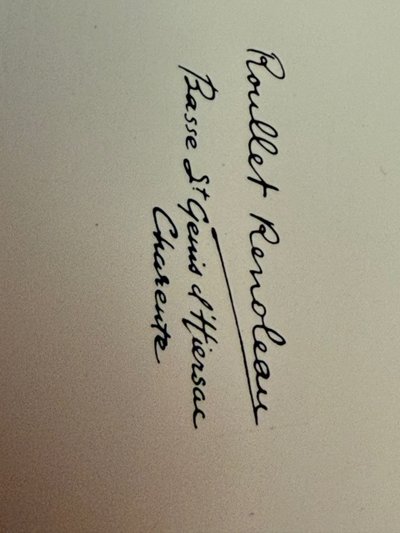 Roullet Renoleau
Basse St Genis d'Hiersac
Charente